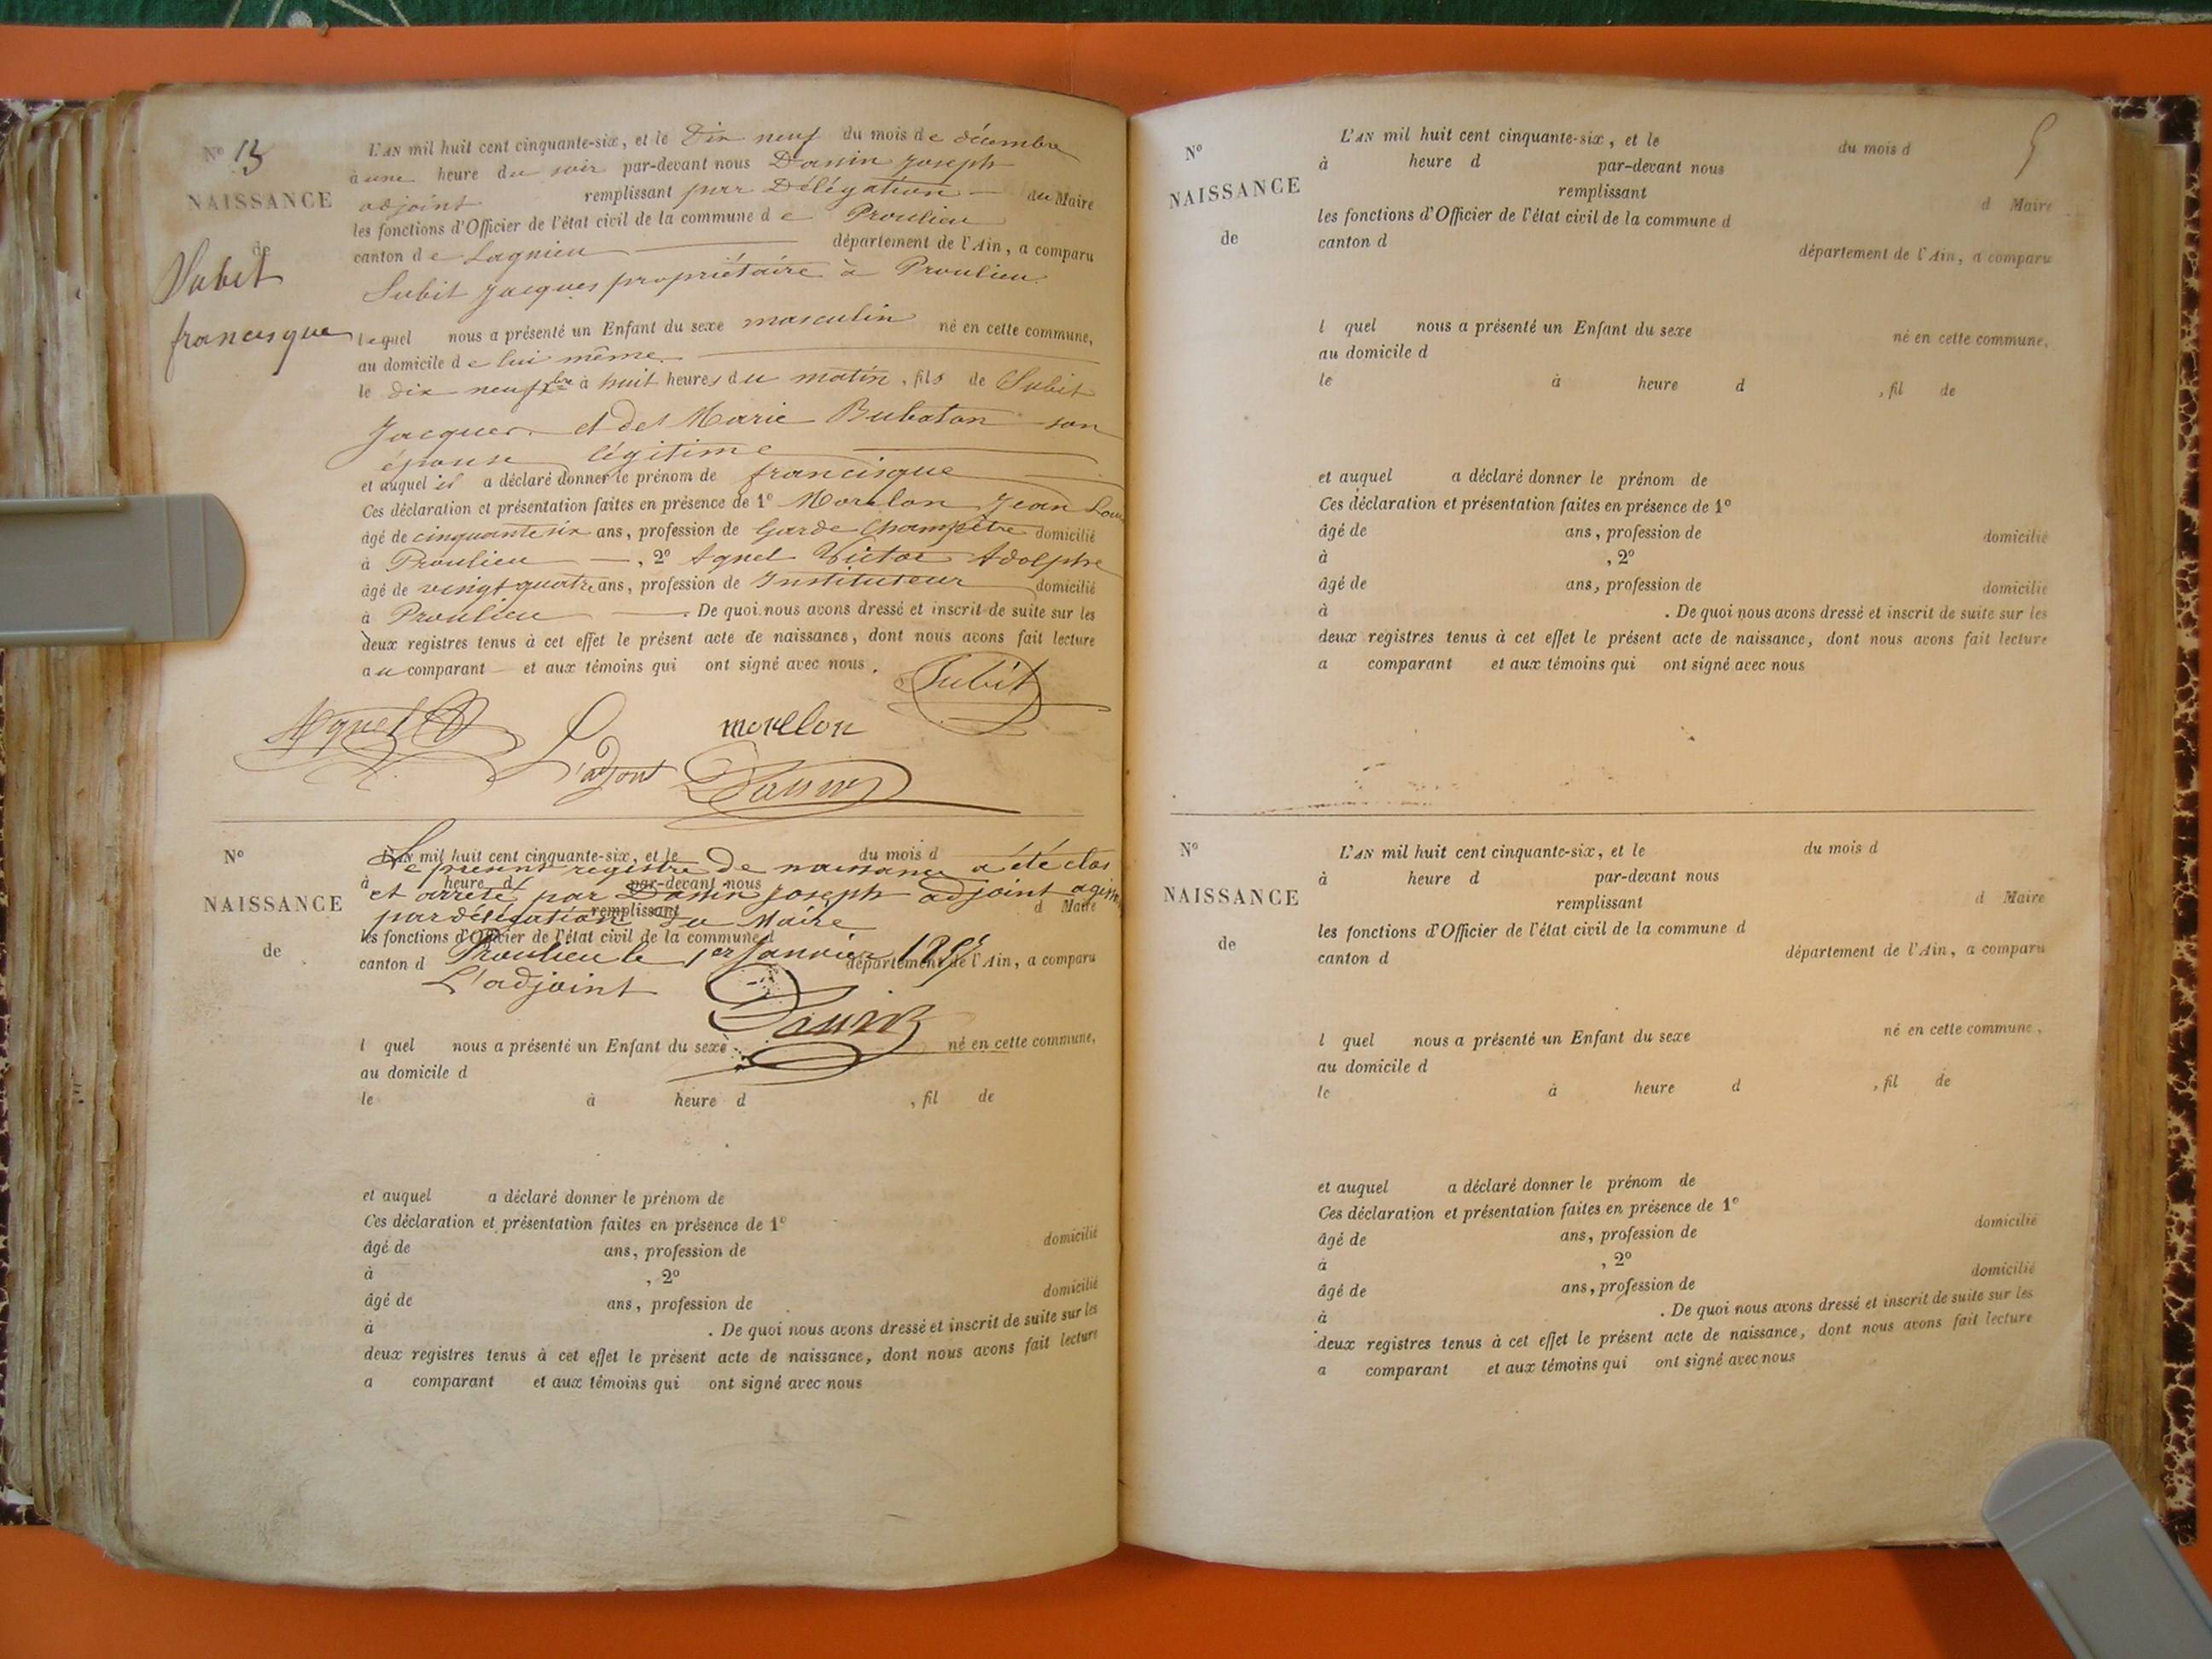 N° 13
NAISSANCE
de
Subit
francisque
L'AN mil huit cent cinquante-six, et le Dix neuf du mois de décembre
à une heure du soir par-devant nous Danin Joseph
adjoint remplissant par Délégation du Maire
les fonctions d'Officier de l'état civil de la commune de Proulieu
canton de Lagnieu département de l'Ain, a comparu
Subit Jacques propriétaire à Proulieu
lequel nous a présenté un Enfant du sexe masculin né en cette commune,
au domicile de lui même
le dix neuf Xbre à huit heures du matin, fils de Subit
Jacques et de Marie Bubaton son
épouse légitime
et auquel il a déclaré donner le prénom de francisque
Ces déclaration et présentation faites en présence de 1° Morelon Jean Louis
âgé de cinquante six ans, profession de Garde Champêtre domicilié
à Proulieu , 2° Agnel Victor Adolphe
âgé de vingt quatre ans, profession de Instituteur domicilié
à Proulieu . De quoi nous avons dressé et inscrit de suite sur les
deux registres tenus à cet effet le présent acte de naissance, dont nous avons fait lecture
au comparant et aux témoins qui ont signé avec nous.
Subit
Agnel
L'adjoint
morellon
Danin
N°
NAISSANCE
de
L'AN mil huit cent cinquante-six, et le du mois d
Le présent registre de naissance a été clos
à heure d par-devant nous
et arrêté par Danin Joseph adjoint agissant
remplissant d Maire
par délégation du Maire
les fonctions d'Officier de l'état civil de la commune d
Proulieu le 1er Janvier
canton d département de l'Ain, a comparu
L'adjoint
Danin
l quel nous a présenté un Enfant du sexe né en cette commune,
au domicile d
le à heure d , fil de
et auquel a déclaré donner le prénom de
Ces déclaration et présentation faites en présence de 1°
âgé de ans, profession de domicilié
à , 2°
âgé de ans, profession de domicilié
à . De quoi nous avons dressé et inscrit de suite sur les
deux registres tenus à cet effet le présent acte de naissance, dont nous avons fait lecture
a comparant et aux témoins qui ont signé avec nous
5
N°
NAISSANCE
de
L'AN mil huit cent cinquante-six, et le du mois d
à heure d par-devant nous
remplissant d Maire
les fonctions d'Officier de l'état civil de la commune d
canton d département de l'Ain, a comparu
l quel nous a présenté un Enfant du sexe né en cette commune,
au domicile d
le à heure d , fil de
et auquel a déclaré donner le prénom de
Ces déclaration et présentation faites en présence de 1°
âgé de ans, profession de domicilié
à , 2°
âgé de ans, profession de domicilié
à . De quoi nous avons dressé et inscrit de suite sur les
deux registres tenus à cet effet le présent acte de naissance, dont nous avons fait lecture
a comparant et aux témoins qui ont signé avec nous
N°
NAISSANCE
de
L'AN mil huit cent cinquante-six, et le du mois d
à heure d par-devant nous
remplissant d Maire
les fonctions d'Officier de l'état civil de la commune d
canton d département de l'Ain, a comparu
l quel nous a présenté un Enfant du sexe né en cette commune,
au domicile d
le à heure d , fil de
et auquel a déclaré donner le prénom de
Ces déclaration et présentation faites en présence de 1°
âgé de ans, profession de domicilié
à , 2°
âgé de ans, profession de domicilié
à . De quoi nous avons dressé et inscrit de suite sur les
deux registres tenus à cet effet le présent acte de naissance, dont nous avons fait lecture
a comparant et aux témoins qui ont signé avec nous